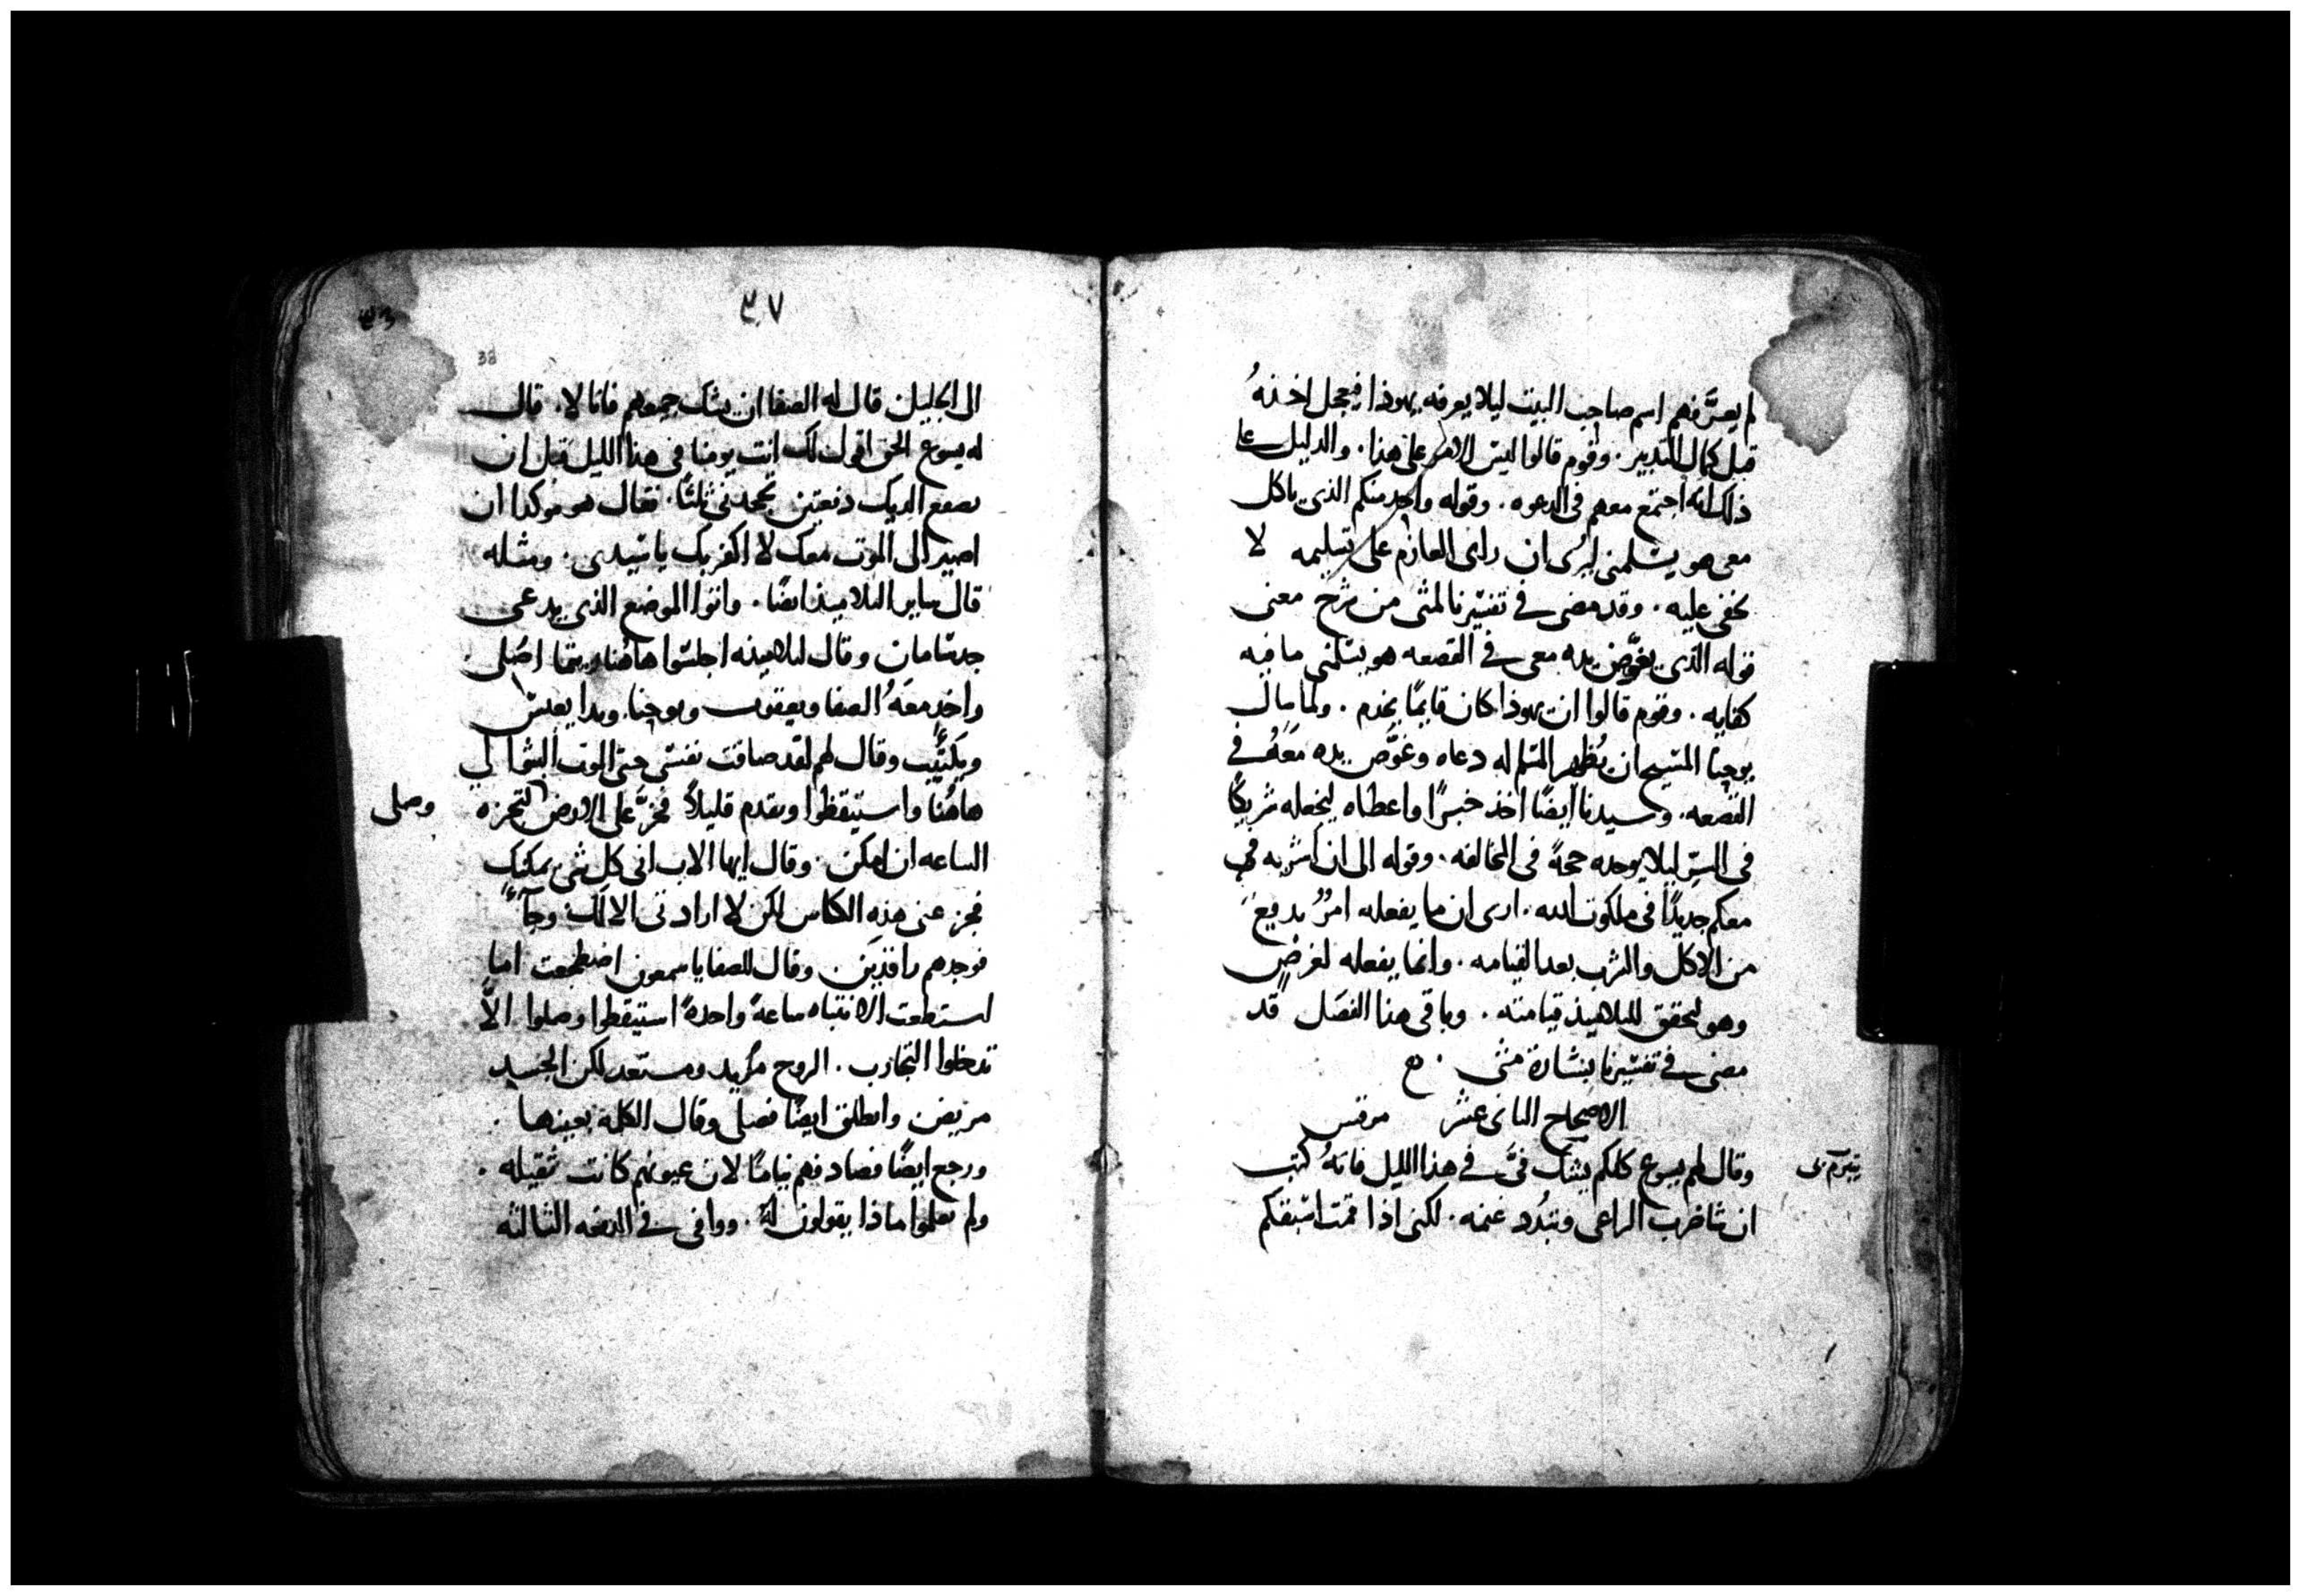 لم يعرَّفهم اسم صاحب البيت ليلا يعرفه يهوذا فيعجل اخذنهُ
قبل كمال التدبير. وقوم قالوا ليس الامر على هذا. والدليل على
ذلك انه اجتمع معهم في الدعوه. وقوله واحد منكم الذي ياكل
معي هو يسلمني ليُرى ان راى العازم على تسليمه لا
يخفى عليه. وقد مضى في تفسيرنا لمتى من شرح معنى
قوله الذي يغوَّص يده معي في القصعه هو يسلمني ما فيه
كفايه. وقوم قالوا ان يهوذا كان قايمًا يخدم. ولما سال
يوحنا المسيح ان يُظهر المسلم له دعاه وغوَّص يده معَهُ في
القصعه. وسيدنا ايضًا اخذ خبزًا واعطاه ليجعله شريكًا
في السرّ ليلا يوجده حجةً في المخالفه. وقوله الى ان اشربه في
معكم جديدًا في ملكوت الله. ارى ان ما يفعله امرٌ بديع
من الاكل والشرب بعد القيامه. وانما يفعله لغرضٍ
وهو ليحقق للتلاميذ قيامته. وباقي هذا الفصل قد
مضى في تفسيرنا بشارة متى.
الاصحاح الثاني عشر مرقس
وقال لهم يسوع كلكم يشك فيَّ في هذا الليل فانهُ كتب
ان ساضرب الراعي وتبدُد غنمه. لكني اذا قمت اسبقكم
٣٧
38
الى الجليل. قال له الصفا ان يشك جميعهم فانا لا. قال
له يسوع الحق اقول لك انت يومنا في هذا الليل قبل ان
يصقع الديك دفعتين تجحدني ثلثًا. فقال هو موكدا ان
اصير الى الموت معك لا اكفر بك يا سيدي. ومثله
قال ساير التلاميذ ايضًا. واتوا الموضع الذي يدعى
جدسامان وقال لتلاميذه اجلسوا هاهُنا ريثما اصُلي.
واخذ معَهُ الصفا ويعقوب ويوحنا. وبدا يعبس
ويكتيِّب وقال لهم لقد ضاقت نفسي حتى الموت البثوا لي
هاهُنا واستيقظوا وتقدم قليلاً فخرَّ على الارض لتجزه وصلى
الساعه ان امكن. وقال ايها الاب ابي كل شي يمكنك
فجز عني هذه الكاس لكن لا ارادتي الا لك وجآءً
فوجدهم راقدين. وقال للصفا يا سمعون اضطجعت اما
استطعت الانتباه ساعةً واحدةً استيقظوا وصلوا الاَّ
تدخلوا التجارب. الروح مرُيد ومستعد لكن الجسد
مريض وانطلق ايضًا فصلى وقال الكلمة بعينها.
ورجع ايضًا فصادفهم نيامًا لان عيونهم كانت ثقيله.
ولم يعلموا ماذا يقولون لهُ. ووافى في الدفعه الثالثه